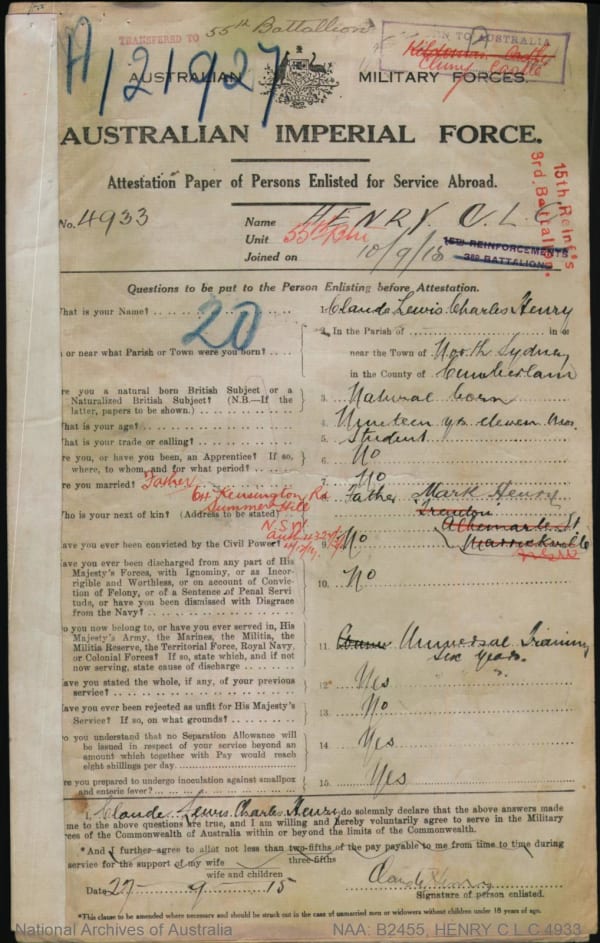 TRANSFERRED TO 55th Battallion
TO AUSTRALIA
Kildonan Castle
Cluny Castle
A/121927
AUSTRALIAN MILITARY FORCES.
AUSTRALIAN IMPERIAL FORCE.
Attestation Paper of Persons Enlisted for Service Abroad.
No. 4933
Name HENRY. C. L. C.
Unit 55th Btn
Joined on 10/9/15
15TH REINFORCEMENTS
3RD BATTALION
15th Reinf's
3rd. Battalion.
Questions to be put to the Person Enlisting before Attestation.
20
hat is your Name?
1. Claude Lewis Charles Henry
or near what Parish or Town were you born?
2. In the Parish of in or
near the Town of North Sydney
in the County of Cumberland
re you a natural born British Subject or a
Naturalized British Subject? (N.B.—If the
latter, papers to be shown.)
3. Natural born
hat is your age?
4. Nineteen yrs eleven mos.
hat is your trade or calling?
5. Student
re you, or have you been, an Apprentice? If so,
where, to whom, and for what period?
6. No
re you married?
7. No
Father
64 Kensington Rd
Summer Hill
N.S.W.
ho is your next of kin? (Address to be stated)
8. Father Mark Henry
Albemarle St
Marrickville
N.S.W
ave you ever been convicted by the Civil Power?
No
ave you ever been discharged from any part of His
Majesty's Forces, with Ignominy, or as Incor-
rigible and Worthless, or on account of Convic-
tion of Felony, or of a Sentence of Penal Servi-
tude, or have you been dismissed with Disgrace
from the Navy?
10. No
o you now belong to, or have you ever served in, His
Majesty's Army, the Marines, the Militia, the
Militia Reserve, the Territorial Force, Royal Navy,
or Colonial Forces? If so, state which, and if not
now serving, state cause of discharge
11. Universal Training
six years.
ave you stated the whole, if any, of your previous
service?
12* Yes
ave you ever been rejected as unfit for His Majesty's
Service? If so, on what grounds?
13. No
o you understand that no Separation Allowance will
be issued in respect of your service beyond an
amount which together with Pay would reach
eight shillings per day.
14. Yes
re you prepared to undergo inoculation against smallpox
and enteric fever?
15. Yes
I, Claude Lewis Charles Henry do solemnly declare that the above answers made
me to the above questions are true, and I am willing and hereby voluntarily agree to serve in the Military
rces of the Commonwealth of Australia within or beyond the limits of the Commonwealth.
*And I further agree to allot not less than two-fifths of the pay payable to me from time to time during
three-fifths
service for the support of my wife
wife and children
Date 27-9-15
Claude Henry
Signature of person enlisted.
*This clause to be amended where necessary and should be struck out in the case of unmarried men or widowers without children under 18 years of age.
National Archives of Australia
NAA: B2455, HENRY C L C 4933